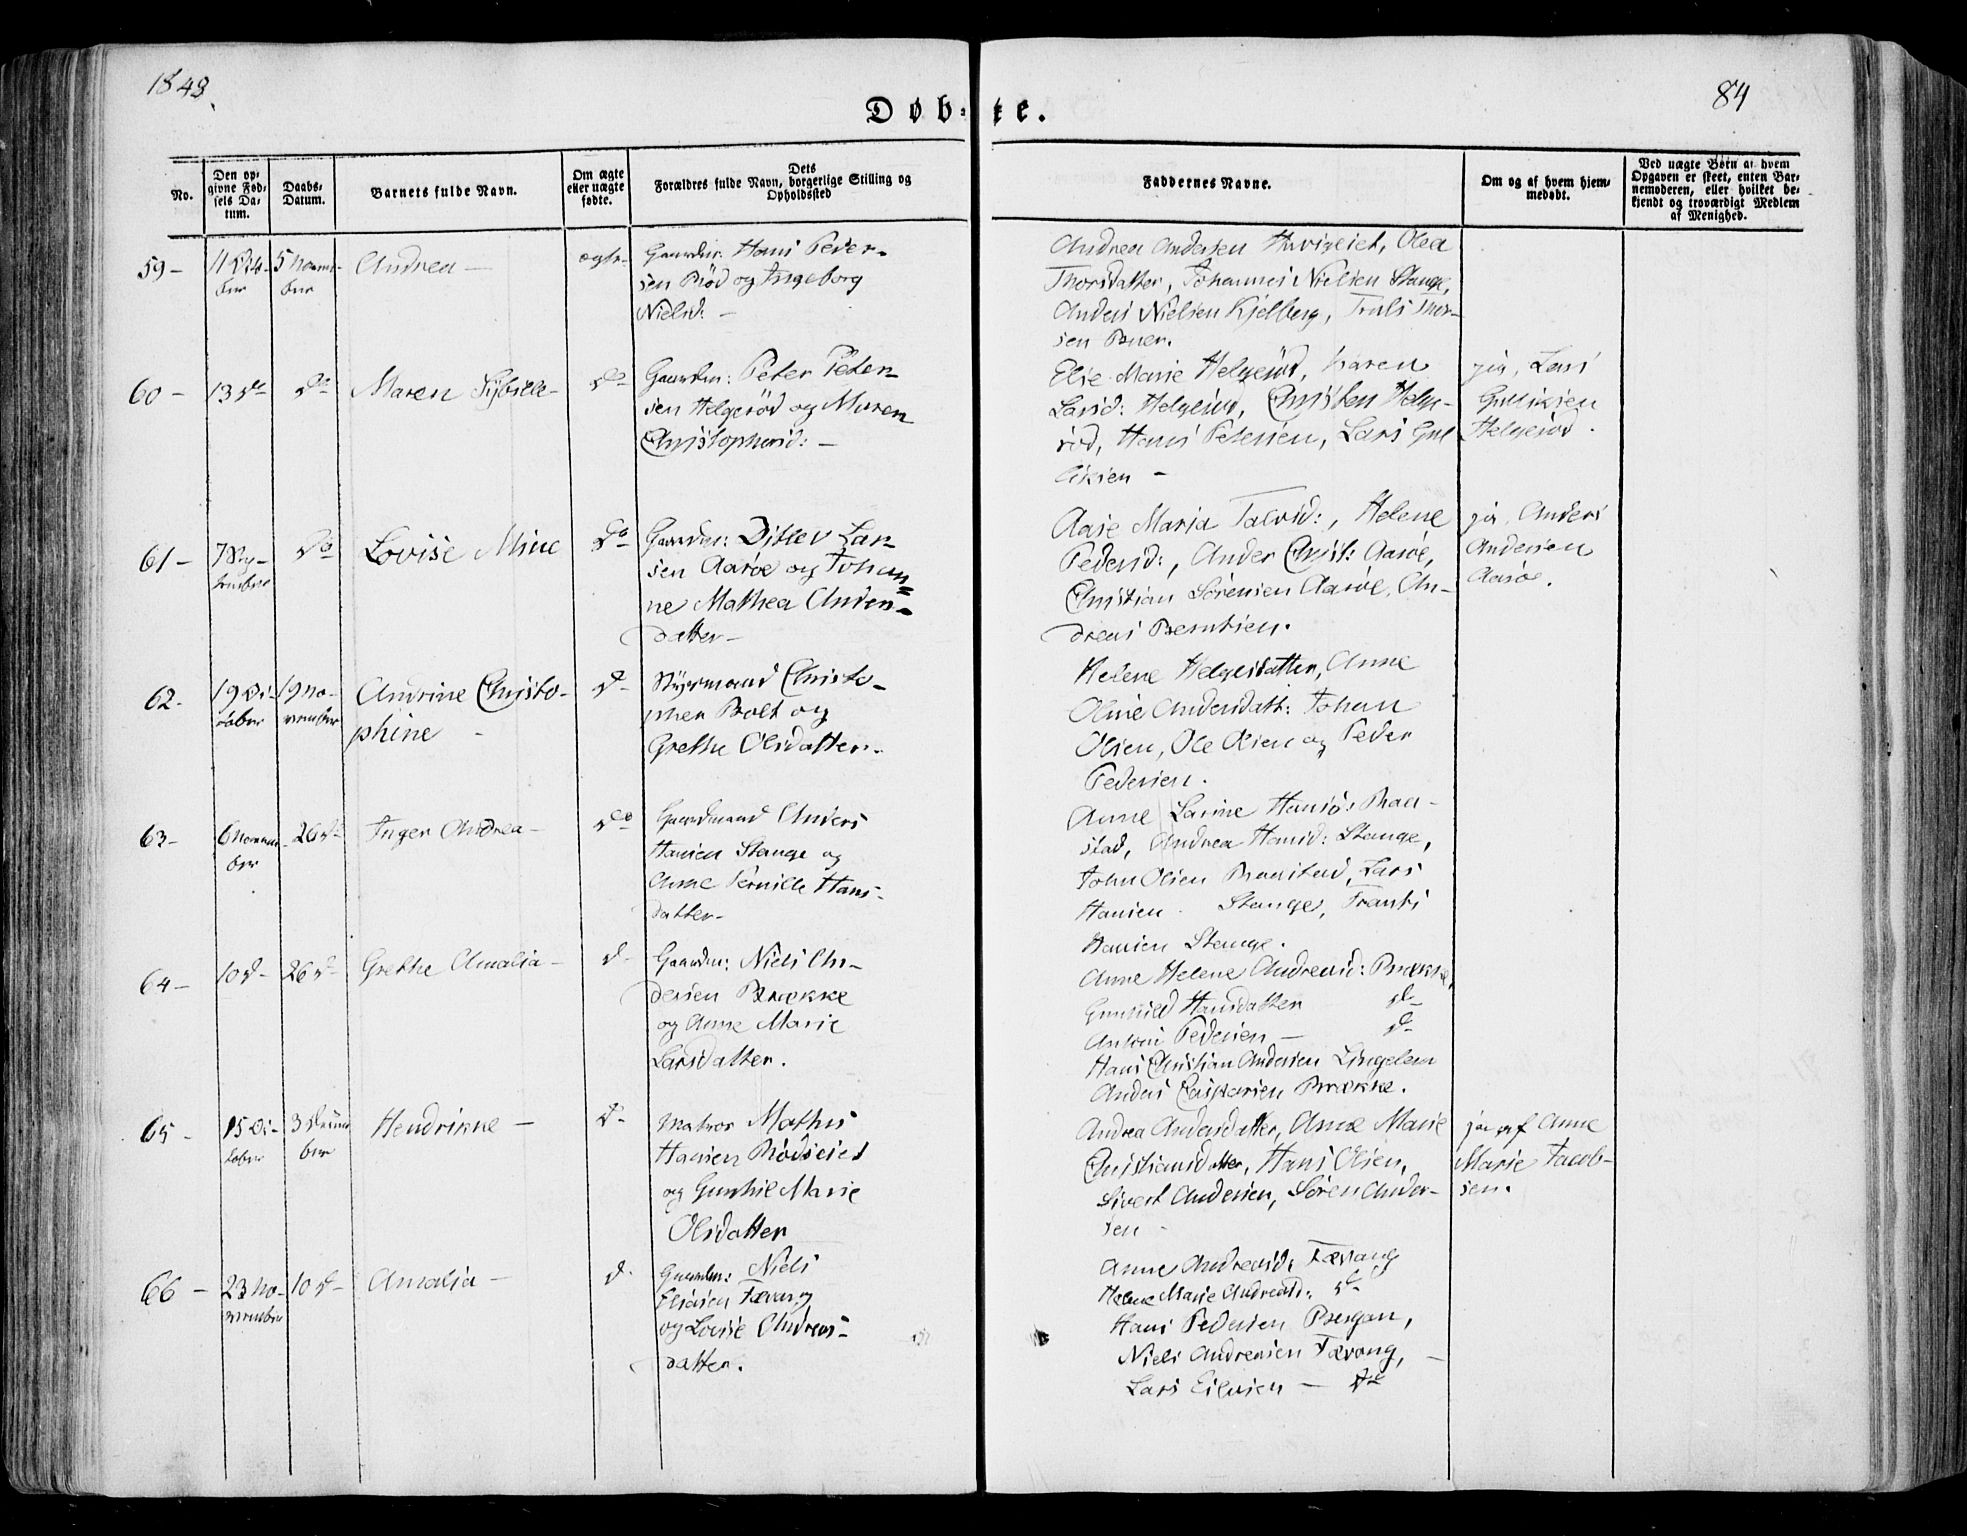 1848.
84
Døbte.
No.
Den op-
givne Fød-
sels Da-
tum.
Daabs-
Datum.
Barnets fulde Navn.
Om ægte
eller uægte
fødte.
Dets
Forældres fulde Navn, borgerlige Stilling og
Opholdssted
Faddernes Navne.
Om og af hvem hjem-
medøbt.
Ved uægte Børn af hvem
Opgaven er skeet, enten Bar-
nemoderen, eller hvilket be-
kjendt og troværdigt Medlem
af Menighed.
59-
5 Novem-
ber
Andrea -
ægte-
Gaardm: Hans Peder-
sen Röd og Ingeborg
Nielsd: -
Andrea Andersen Olea
Thorsdatter, Johannes Nielsen Stange,
Anders Nielsen Kjelberg, Truls Thor-
sen Buer.
60-
13 do
do
Maren Sybille-
do
Gaardm: Peter Peter-
sen Helgeröd og Maren
Christophersd: -
Elise Marie Helgeröd, Karen
Larsd: Helgeröd, Christen Helge-
röd, Hans Petersen, Lars Gul
liksen -
ja, Lars
Gulliksen
Helgeröd.
61-
7 Sep-
tember
do
Lovise Mine
do
Gaardm: Ditlev Lar-
sen Aaröe og Johan-
ne Mathea Anders-
datter-
Aase Maria , Helene
Pedersd:, Ander Christ: Aaröe,
Christian Sörensen Aaröe, An-
dreas Berntsen.
ja, Anders
Andersen
Aaröe.
62-
19 Oc-
tober
19 No-
vember
Andrine Christo-
phine -
d-
Styrmand Christo-
pher Bolt og
Grethe Olsdatter.
Helene Helgesdatter, Anne
Oline Andersdatt: Johan
Olsen, Ole Olsen og Peder
Pedersen.
63-
6 Novem-
ber
26 d-
Inger Andrea-
do
Gaardmand Anders
Hansen Stange og
Anne Pernille Hans-
datter-
Anne Larine Hansd: Baa-
stad, Andrea Hansd: Stange,
John Olsen Baastad, Lars
Hansen Stange, Frants
Hansen Stange.
64-
10 d-
26 d-
Grethe Amalia-
d-
Gaardm: Niels An-
dersen Brække
og Anne Marie
Larsdatter.
Anne Helene Andreasd: Brække,
Gunnild Hansdatter do
Anton Pedersen - do
Hans Christian Andersen Lingelem
Anders Caspersen Brække.
65-
15 Oc-
tober
3 Decem-
ber
Hendrikke -
d-
Matros Mathis
Hansen Rödseiet
og Gunhil Marie
Olsdatter
Andrea Andersdatter, Anne Marie
Christiansdatter, Hans Olsen,
Sivert Andersen, Sören Ander-
sen -
ja, af Anne
Marie Jacob-
sen.
66-
23 No-
vember
10 d-
Amalia-
d-
Gaardm: Niels
Eliasen Tævang
og Lovise Andreas-
datter.
Anne Andreasd: Tævang
Helene Marie Andreasd: do
Hans Pedersen Bergan,
Niels Andreasen Tævang, -
Lars Eilvsen - do